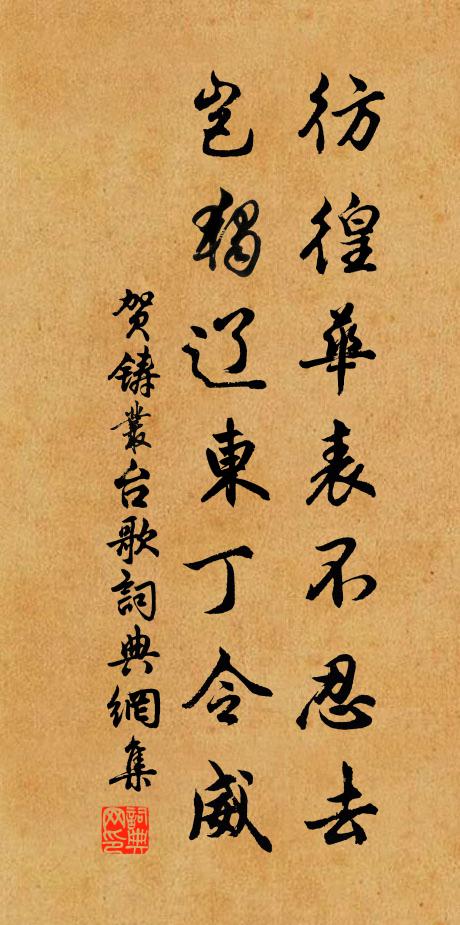 彷徨華表不忍去
岂獨辽東丁令威
贺鑄叢台歌詞典網集
詞典網印